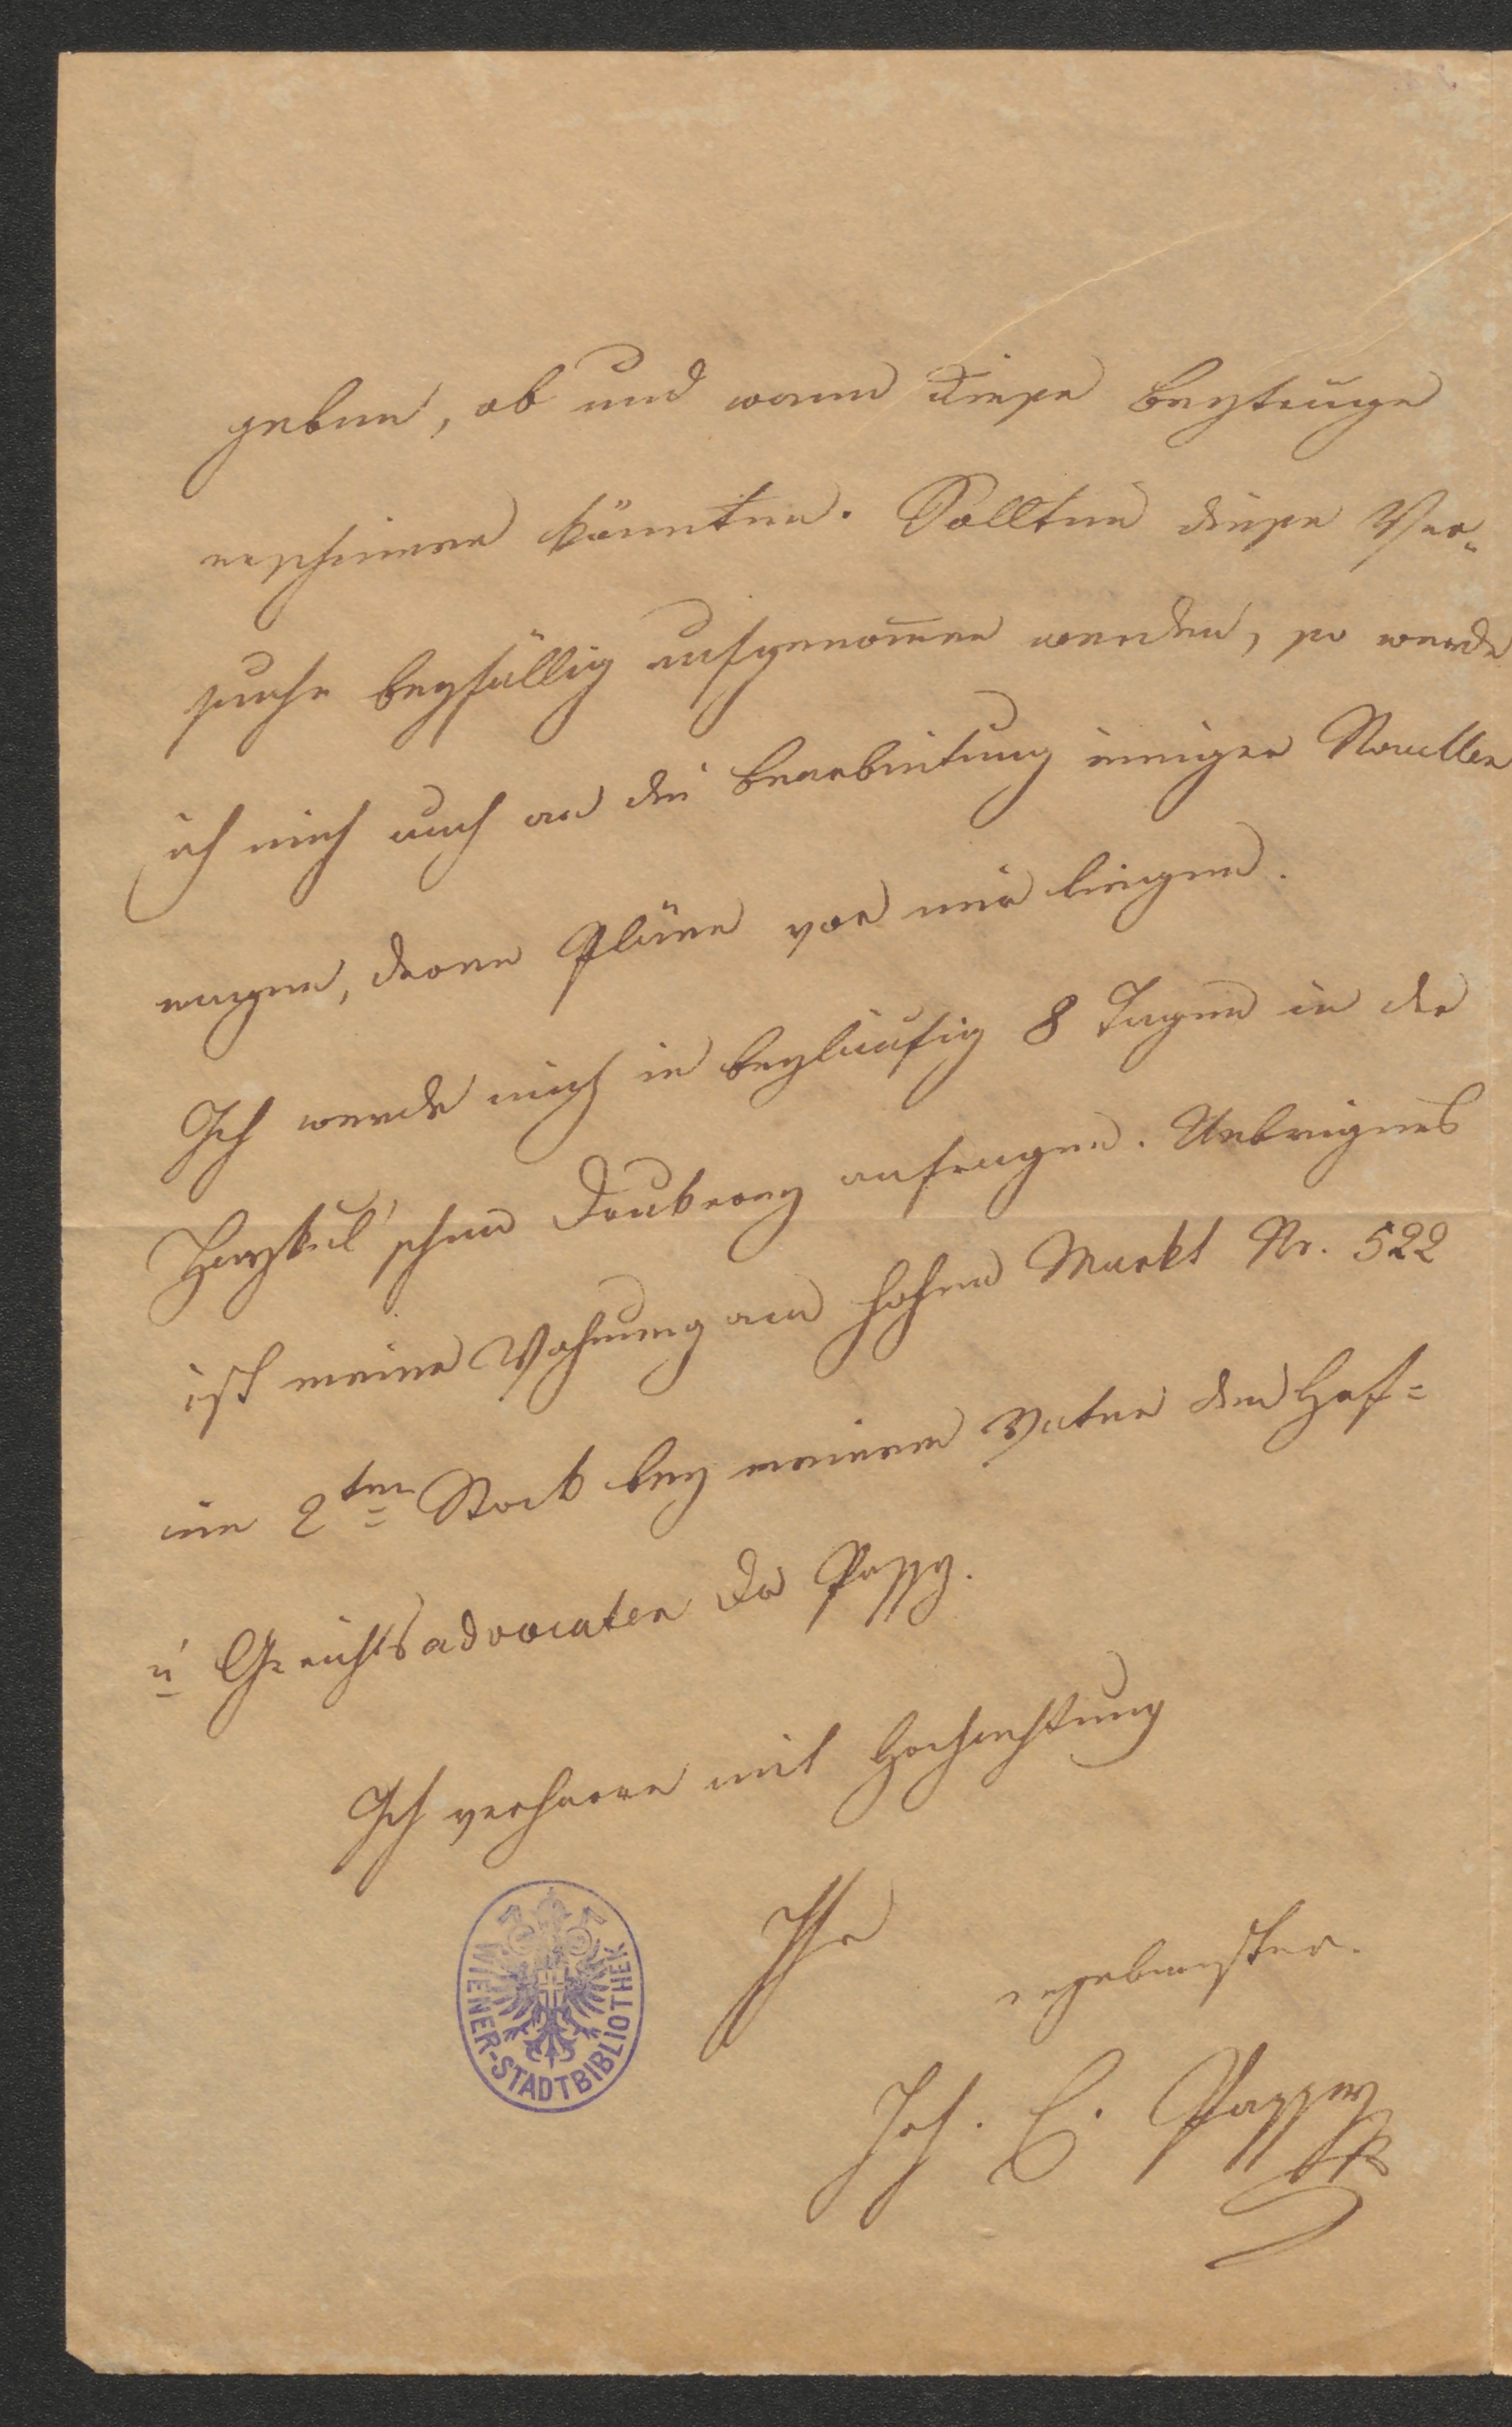 geben, ob und wann diese Beyträge
erscheinen könnten. Sollten diese Ver„
suche beyfällig aufgenom̅en werden, so werde
ich mich auch an die Bearbeitung einiger Novellen
wagen, deren Pläne vor mir liegen.
Ich werde mich in beyläufig 8 Tagen in der
Haykul'schen Druckerey anfragen. Uebrigens
ist meine Wohnung am hohen Markt Nr. 522
im 2ten Stock bey meinem Vater dem Hof=
u Gerichtsadvocaten Dr Passy.
Ich verharre mit Hochachtung
Ihr
ergebenster
Joh. C. Passy
WIENER-STADTBIBLIOTHEK